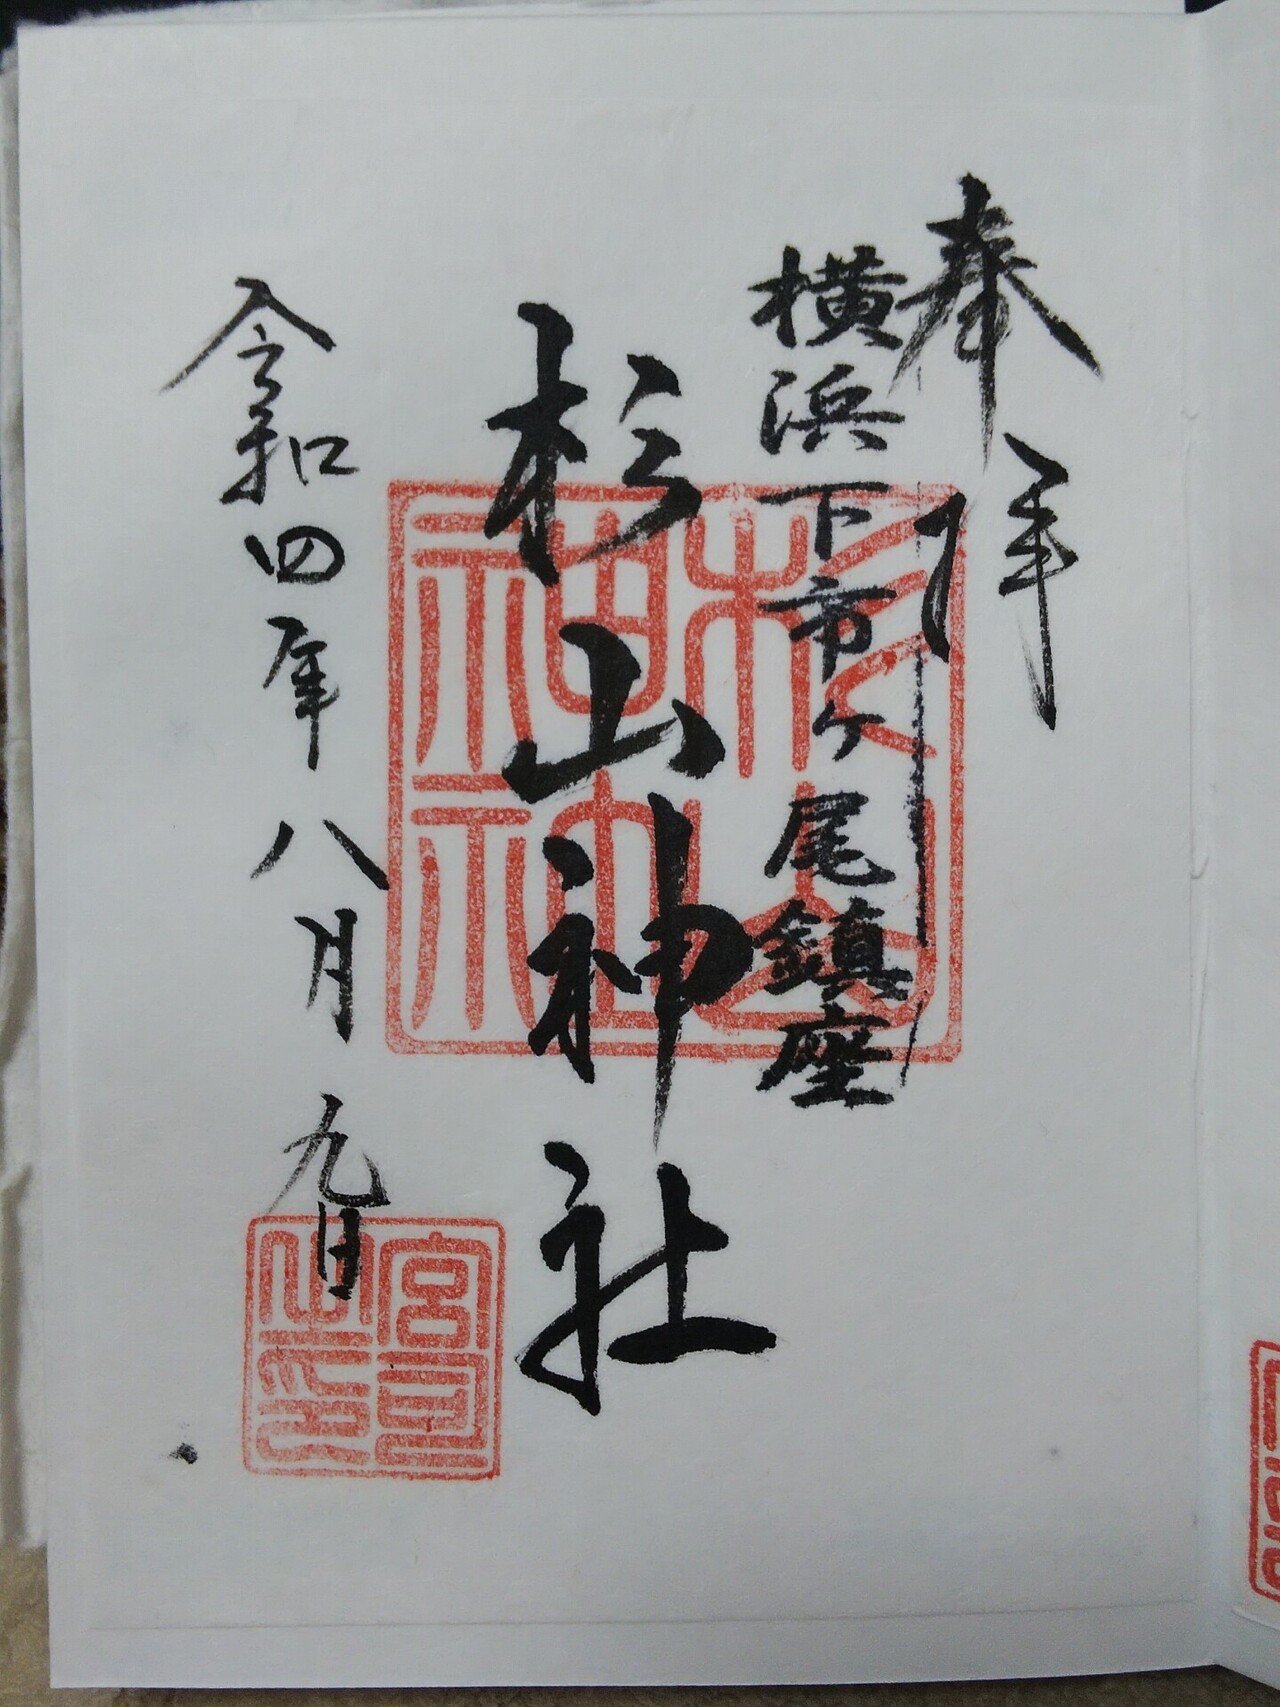 奉拝
横浜下市ケ尾鎮座
杉山神社
令和四年八月九日
杉山神社
宮司之印